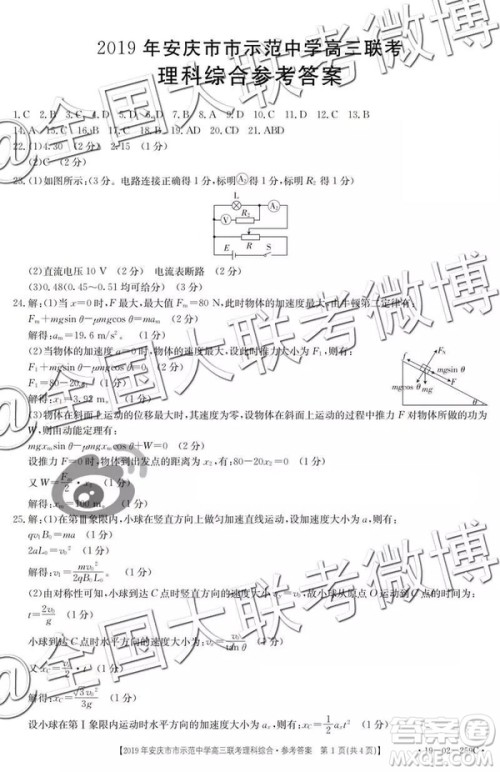 2019 年安庆市市示范中学高三联考
理科综合参考答案
1.C 2.D 3.C 4.D 5.C 6.D 7.C 8.D 9.C 10.D 11.C 12.D 13.B
14.A 15.C 16.B 17.C 18.C 19.AD 20.CD 21.ABD
22.(1)4.30 (2分) 2.15 (1分)
(2)C (2分)
23.(1)如图所示:(3分。电路连接正确得1分,标明A₂得1分,标明R₂得1分)
L
A₂
V
R₂
R
E
S
(2)直流电压10 V (2分) 电流表断路 (2分)
(3)0.48(0.45~0.51均可得分) (2分)
24.解:(1)当x=0时,F最大,最大值Fₘ=80 N,此时物体的加速度最大,由牛顿第二定律有:
Fₘ+mgsin θ-μmgcos θ=maₘ (2分)
解得:aₘ=19.6 m/s²。 (1分)
(2)当物体的加速度a=0时,物体的速度最大,设此时推力大小为F₁,则有:
F₁+mgsin θ=μmgcos θ (2分)
F₁=80-20x₁ (1分)
解得:x₁=3.92 m。 (1分)
F_N
mgsin θ
mgcos θ
mg
θ
(3)物体在斜面上运动的位移最大时,其速度为零,设物体在斜面上运动的过程中推力F对物体所做的功为
W,则由动能定理有:
mgxₘsin θ-μmgxₘcos θ+W=0 (2分)
设推力F=0时,物体到出发点的距离为x₂,有:80-20x₂=0 (1分)
25.解:(1)在第Ⅲ象限内,小球在竖直方向上做匀加速直线运动,设加速度大小为a,则有:
qv₀B₀=ma (1分)
2aL₀=v₀² (1分)
解得:L₀=mv₀/2qB₀。 (1分)
(2)由对称性可知,小球到达C点时竖直方向的速度大小为v₀,故小球从原点O运动到C点的时间为:
t=2v₀/g (1分)
小球到达C点时水平方向的速度大小为:
(1分)
设小球在第Ⅰ象限内运动时水平方向的加速度大小为a₁,则有:x_C=1/2a₁t² (1分)
【2019年安庆市市示范中学高三联考理科综合·参考答案 第1页(共4页)】
·19-02-259C·
全国大联考微博
@全国大联考微博
@全国大联考微博